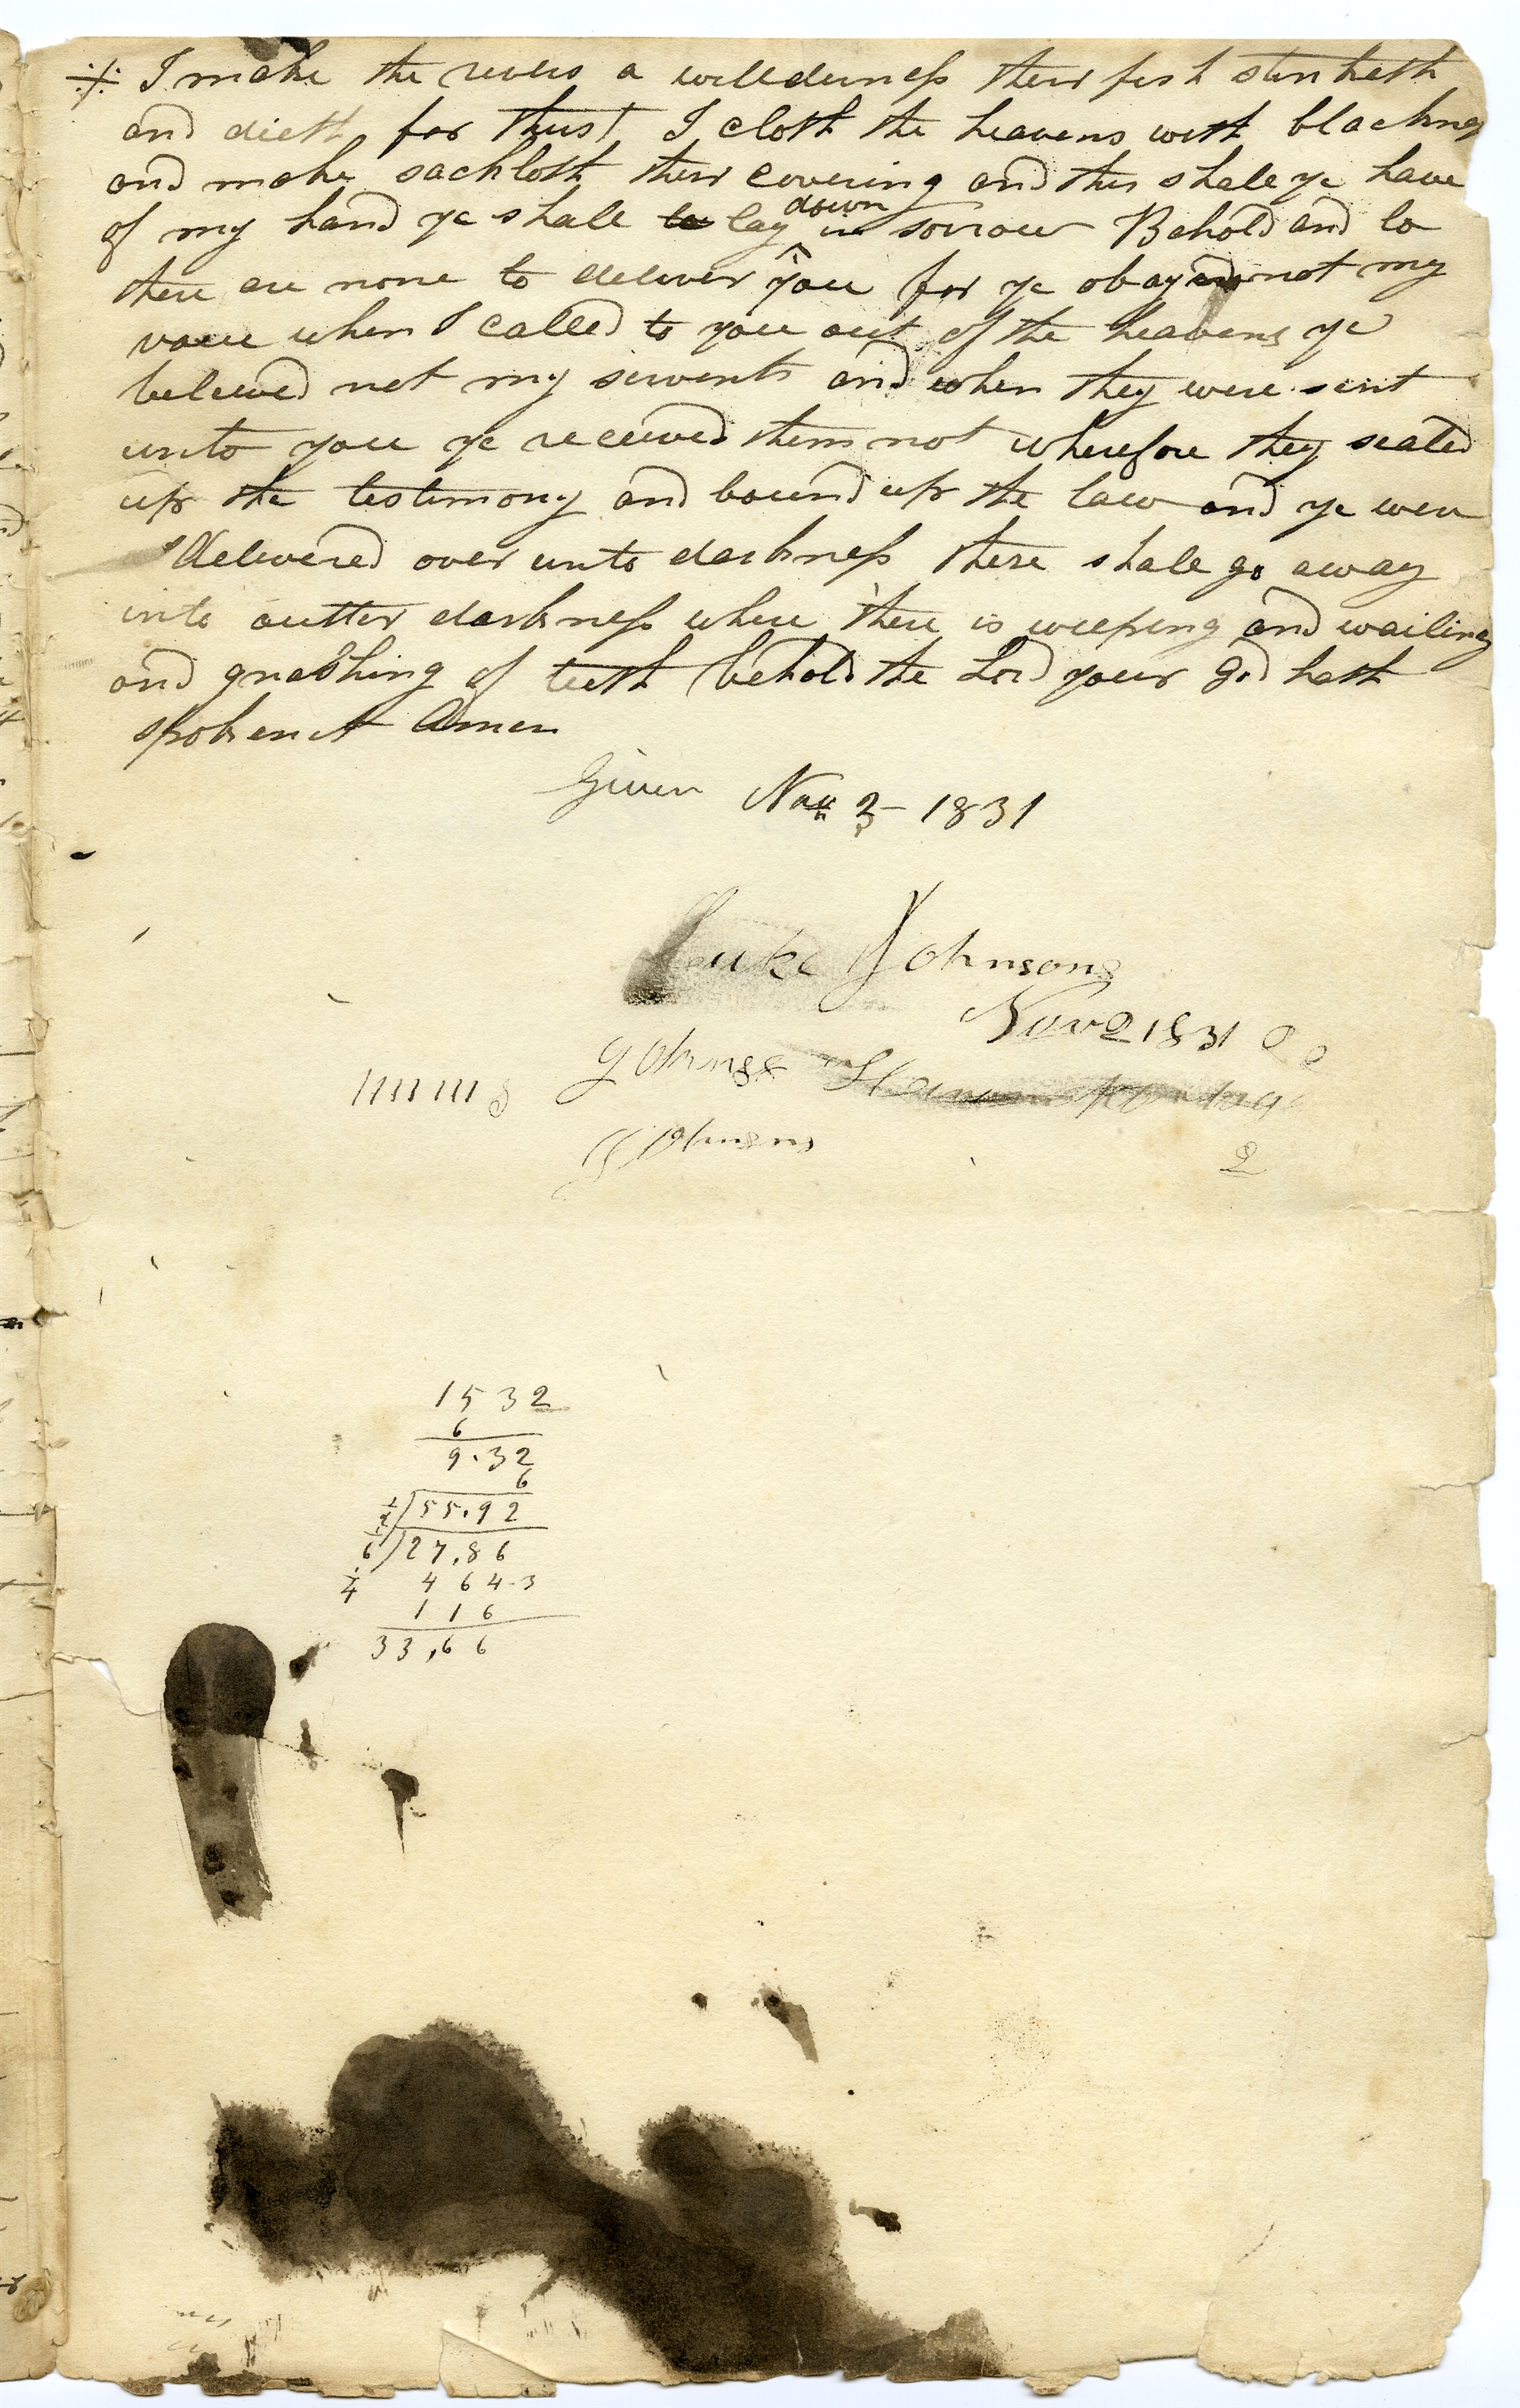 I make the rivers a willderness their fish stinketh
and dieth for thirst I cloth the heavens with blackness
and make sackloth their covering and this shall ye have
of my hand ye shall lay down in sorrow Behold and lo
there are none to deliver you for ye obayed not my
voice when I called to you out of the heavens ye
believed not my servents and when they were sent
unto you ye received them not wherefore they sealed
up the testimony and bound up the law and ye were
delivered over unto darkness these shall go away
into outter darkness where there is weeping and wailing
and gnashing of teeth behold the Lord your God hath
spoken it Amen
Given Nov 3 - 1831
Luke Johnsons
Nov 2 1831
2
1532
6
9.32
6
1/2 ) 55.92
1/6 ) 27,86
1/4 464-3
116
33,66